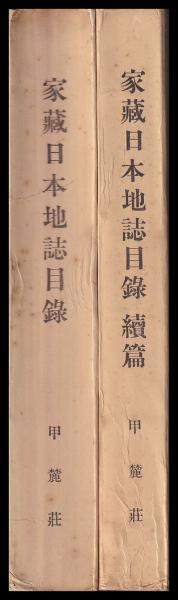 家藏日本地誌目錄 續篇
甲麓莊
家藏日本地誌目錄
甲麓莊